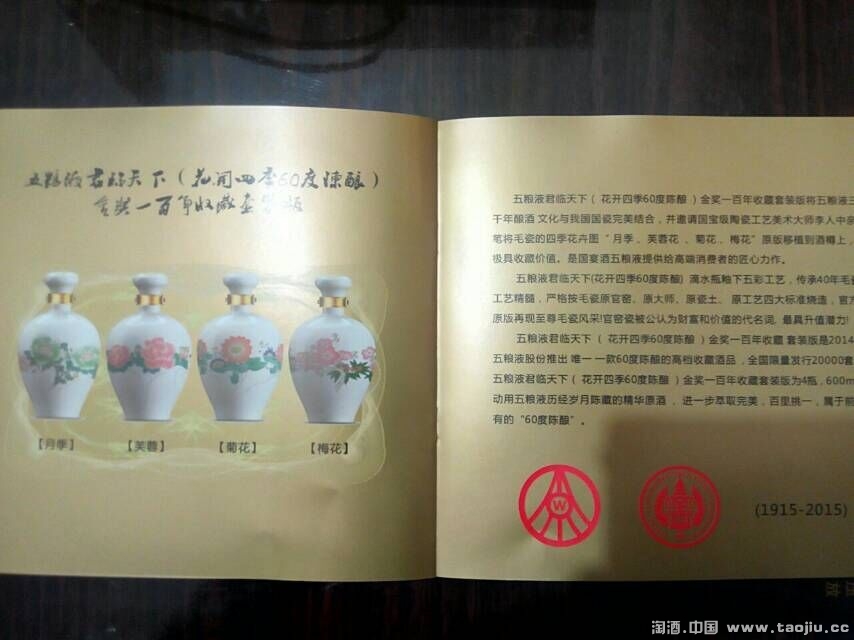 五粮液君临天下(花开四季60度陈酿)
金奖一百年收藏套装版
【月季】
【芙蓉】
【菊花】
【梅花】
五粮液君临天下( 花开四季60度陈酿 ) 金奖一百年收藏套装版将五粮液三
千年酿酒 文化与我国国瓷完美结合，并邀请国宝级陶瓷工艺美术大师李人中亲
笔将毛瓷的四季花卉图“ 月季 、芙蓉花 、菊花 、梅花” 原版移植到酒樽上，
极具收藏价值。是国宴酒五粮液提供给高端消费者的匠心力作。
五粮液君临天下(花开四季60度陈酿) 滴水瓶釉下五彩工艺，传承40年毛瓷
工艺精髓，严格按毛瓷原官窑、原大师、原瓷土、原工艺四大标准烧造，官方
原版再现至尊毛瓷风采!官窑瓷被公认为财富和价值的代名词, 最具升值潜力!
五粮液君临天下 ( 花开四季60度陈酿 ) 金奖一百年收藏 套装版是2014
五粮液股份推出 唯一 一款60度陈酿的高档收藏酒品，全国限量发行20000套
五粮液君临天下 ( 花开四季60度陈酿 ) 金奖一百年收藏套装版为4瓶, 600m
动用五粮液历经岁月陈藏的精华原酒 ，进一步萃取完美，百里挑一，属于前
有的“60度陈酿”。
W
(1915-2015)
淘酒.中国 www.taojiu.cc